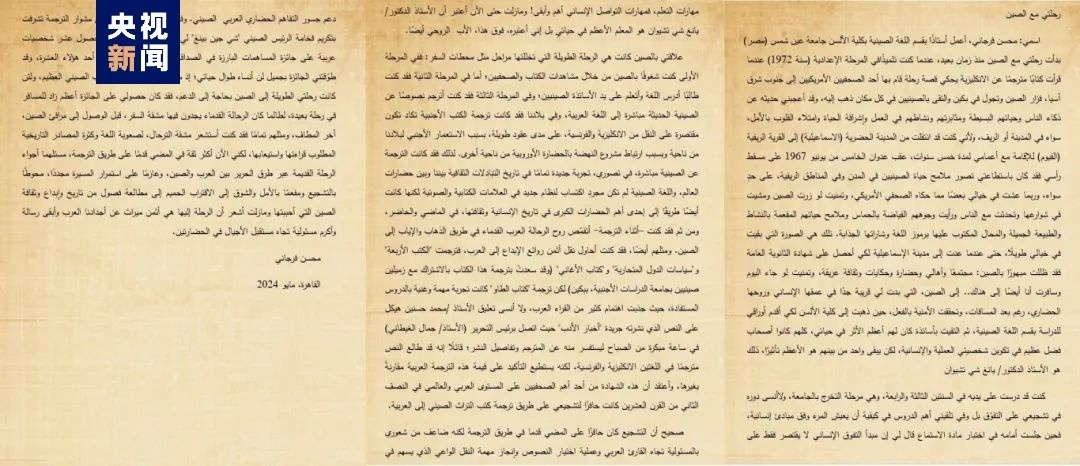 央视新闻
رحلتي مع الصين
اسمي: محسن فرجاني، أعمل أستاذًا بقسم اللغة الصينية بكلية الألسن جامعة عين شمس (مصر)
بدأت رحلتي مع الصين منذ زمان بعيد، عندما كنت تلميذًا في المرحلة الإعدادية (سنة 1972) عندما
قرأت كتابًا مترجمًا عن الانكليزية يحكي قصة رحلة قام بها أحد الصحفيين الأمريكيين إلى جنوب شرق
آسيا، فزار الصين وتجول في بكين والتقى بالصينيين في كل مكان ذهب إليه، وقد أعجبني حديثه عن
ذكاء الناس وحياتهم البسيطة ومثابرتهم ونشاطهم في العمل وإشراقة الحياة وامتلاء القلوب بالأمل،
سواء في المدينة أو الريف، ولأني كنت قد انتقلت من المدينة الحضرية (الاسماعيلية) إلى القرية الريفية
(الفيوم) للإقامة مع أعمامي لمدة خمس سنوات، عقب عدوان الخامس من يونيو 1967 على مسقط
رأسي فقد كان باستطاعتي تصور ملامح حياة الصينيين في المدن وفي المناطق الريفية، على حدٍ
سواء، وربما عشت في خيالي بعضًا مما حكاه الصحفي الأمريكي، وتمنيت لو زرت الصين ومشيت
في شوارعها وتحدثت مع الناس ورأيت وجوههم الفياضة بالحماس وملامح حياتهم المفعمة بالنشاط
والطبيعة الجميلة والمحال المكتوب عليها برموز اللغة وشاراتها الجذابة. تلك هي الصورة التي بقيت
في خيالي طويلًا، حتى عندما عدت إلى مدينة الإسماعيلية لكي أحصل على شهادة الثانوية العامة
فقد ظللت مبهورًا بالصين: مجتمعًا وأهالي وحضارة وحكايات وثقافة عريقة، وتمنيت لو جاء اليوم
وسافرت أنا أيضًا إلى هناك.. إلى الصين، التي بدت لي قريبة جدًا في عمقها الإنساني وروحها
الحضاري، رغم بعد المسافات، وتحققت الأمنية بالفعل، حين ذهبت إلى كلية الألسن لكي أقدم أوراقي
للدراسة بقسم اللغة الصينية، ثم التقيت بأساتذة كان لهم أعظم الأثر في حياتي، كلهم كانوا أصحاب
فضل عظيم في تكوين شخصيتي العملية والإنسانية، لكن يبقى واحد من بينهم هو الأعظم تأثيرًا، ذلك
هو الأستاذ الدكتور/ يانغ شي تشيوان
كنت قد درست على يديه في السنتين الثالثة والرابعة، وهي مرحلة التخرج بالجامعة، ولا أنسى دوره
في تشجيعي على التفوّق بل وفي تلقيني أهم الدروس في كيفية أن يعيش المرء وفق مبادئ إنسانية،
فحين جلست أمامه في اختبار مادة الاستماع قال لي إن مبدأ التفوق الإنساني لا يقتصر فقط على
مهارات التعلم، فمهارات التواصل الإنساني أهم وأبقى! ومازلت حتى الآن أعتبر أن الأستاذ الدكتور/
يانغ شي تشيوان هو المعلم الأعظم في حياتي بل إني أعتبره، فوق هذا، الأب الروحي أيضًا.
علاقتي بالصين كانت هي الرحلة الطويلة التي تخللتها مراحل مثل محطات السفر: ففي المرحلة
الأولى كنت شغوفًا بالصين من خلال مشاهدات الكتاب والصحفيين؛ أما في المرحلة الثانية فقد كنت
طالبًا أدرس اللغة وأتعلم على يد الأساتذة الصينيين؛ وفي المرحلة الثالثة فقد كنت أترجم نصوصًا عن
الصينية الحديثة مباشرة إلى اللغة العربية، وفي بلادنا فقد كانت ترجمة الكتب الأجنبية تكاد تكون
مقتصرة على النقل من الانكليزية والفرنسية، على مدى عقود طويلة، بسبب الاستعمار الأجنبي لبلادنا
من ناحية وبسبب ارتباط مشروع النهضة بالحضارة الأوروبية من ناحية أخرى. لذلك فقد كانت الترجمة
عن الصينية مباشرة، في تصوري، تجربة جديدة تمامًا في تاريخ التبادلات الثقافية بيننا وبين حضارات
العالم، واللغة الصينية لم تكن مجرد اكتساب لنظام جديد في العلامات الكتابية والصوتية لكنها كانت
أيضًا طريقًا إلى إحدى أهم الحضارات الكبرى في تاريخ الإنسانية وثقافتها، في الماضي والحاضر،
ومن ثم فقد كنت –أثناء الترجمة- أتقمّص روح الرحالة العرب القدماء في طريق الذهاب والإياب إلى
الصين. ومثلهم أيضًا، فقد كنت أحاول نقل أثمن روائع الإبداع إلى العرب، فترجمت "الكتب الأربعة"
و"سياسات الدول المتحاربة" و"كتاب الأغاني" (وقد سعدت بترجمة هذا الكتاب بالاشتراك مع زميلين
صينيين بجامعة الدراسات الأجنبية، ببكين) لكن ترجمة "كتاب الطاو" كانت تجربة مهمة وغنية بالدروس
المستفادة، حيث جذبت اهتمام كثير من القراء العرب، ولا أنسى تعليق الأستاذ /محمد حسنين هيكل
على النص الذي نشرته جريدة "أخبار الأدب" حيث اتصل برئيس التحرير (الأستاذ/ جمال الغيطاني)
في ساعة مبكرة من الصباح ليستفسر منه عن المترجم وتفاصيل النشر؛ قائلًا إنه قد طالع النص
مترجمًا في اللغتين الانكليزية والفرنسية، لكنه يستطيع التأكيد على قيمة هذه الترجمة العربية مقارنة
بغيرها، وأعتقد أن هذه الشهادة من أحد أهم الصحفيين على المستوى العربي والعالمي في النصف
الثاني من القرن العشرين كانت حافزًا لتشجيعي على طريق ترجمة كتب التراث الصيني إلى العربية.
صحيح أن التشجيع كان حافزًا على المضي قدما في طريق الترجمة لكنه ضاعف من شعوري
بالمسئولية تجاه القارئ العربي وعملية اختيار النصوص وإنجاز مهمة النقل الواعي الذي يسهم في
دعم جسور التفاهم الحضاري العربي الصيني. وفي مشوار الترجمة تشرفت
بتكريم فخامة الرئيس الصيني "شي جين بينغ" لي حصول عشر شخصيات
عربية على جائزة المساهمات البارزة في الصداقة أحد هؤلاء العشرة، وقد
طوّقتني الجائزة بجميل لن أنساه طوال حياتي؛ إذ الصيني العظيم، ولئن
كانت رحلتي الطويلة إلى الصين بحاجة إلى الدعم، فقد كان حصولي على الجائزة أعظم زاد للمسافر
في رحلة بعيدة، لطالما كان الرحالة القدماء يجدون فيها مشقة السفر، قبل الوصول إلى مرافئ الصين،
آخر المطاف، ومثلهم تمامًا فقد كنت أستشعر مشقة الترحال، لصعوبة اللغة وكثرة المصادر التاريخية
المطلوب قراءتها واستيعابها، لكني الآن أكثر ثقة في المضي قدمًا على طريق الترجمة، مستلهمًا أجواء
الرحلة القديمة عبر طرق الحرير بين العرب والصين، وعازمًا على استمرار المسيرة مجددًا، محوطًا
بالتشجيع ومفعمًا بالأمل والشوق إلى الاقتراب الحميم إلى مطالعة فصول من تاريخ وإبداع وثقافة
الصين التي أحببتها ومازلت أشعر أن الرحلة إليها هي أثمن ميراث عن أجدادنا العرب وأبقى رسالة
وأكرم مسئولية تجاه مستقبل الأجيال في الحضارتين.
محسن فرجاني
القاهرة، مايو 2024